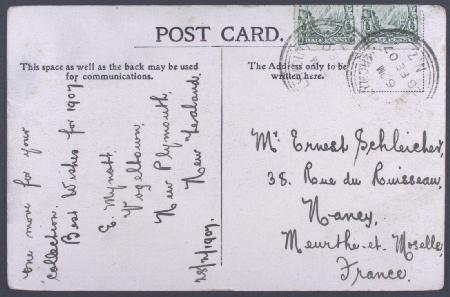 POST CARD.
This space as well as the back may be used
for communications.
The Address only to be
written here.
one more for your
collection.
Best Wishes for 1907
E. Mynott
Vogeltown,
New Plymouth,
New Zealand.
28/2/1907.
Mr Ernest Schleicher,
38. Rue du Ruisseau,
Nancy,
Meurthe-et-Moselle,
France.